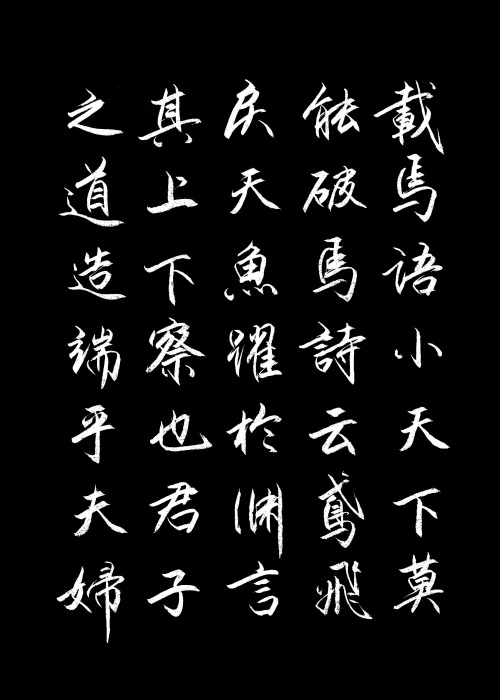 載焉語小天下莫
能破焉詩云鳶飛
戾天魚躍於淵言
其上下察也君子
之道造端乎夫婦